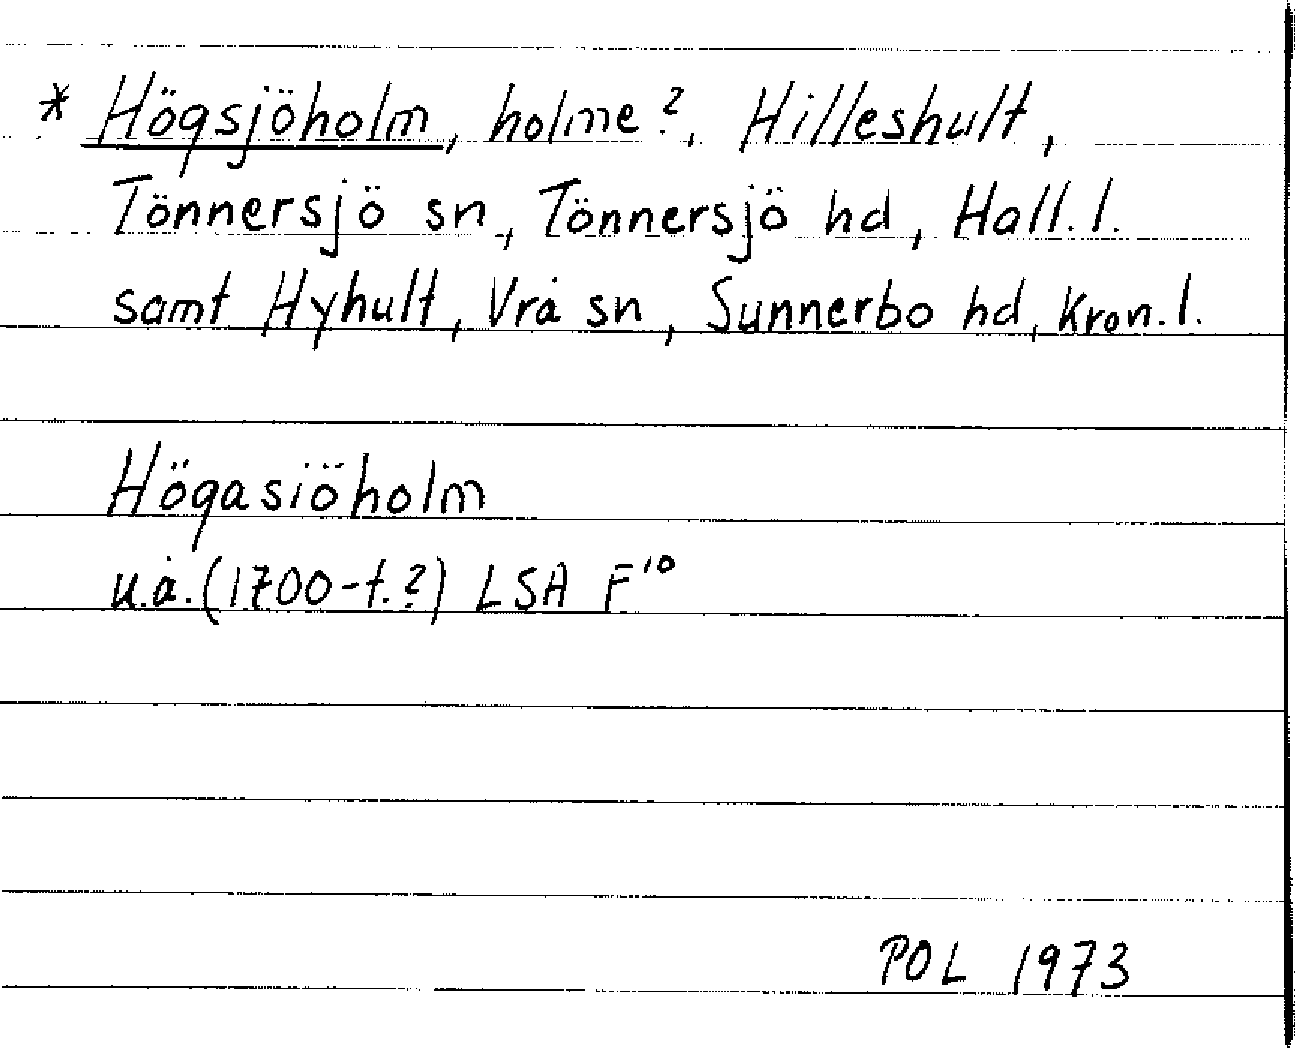 * Högsjöholm, holme?, Hilleshult,
Tönnersjö sn, Tönnersjö hd, Hall. l.
samt Hyhult, Vrå sn, Sunnerbo hd, Kron. l.
Högasiöholm
u.å. (1700-t.?) LSA F¹⁰
POL 1973